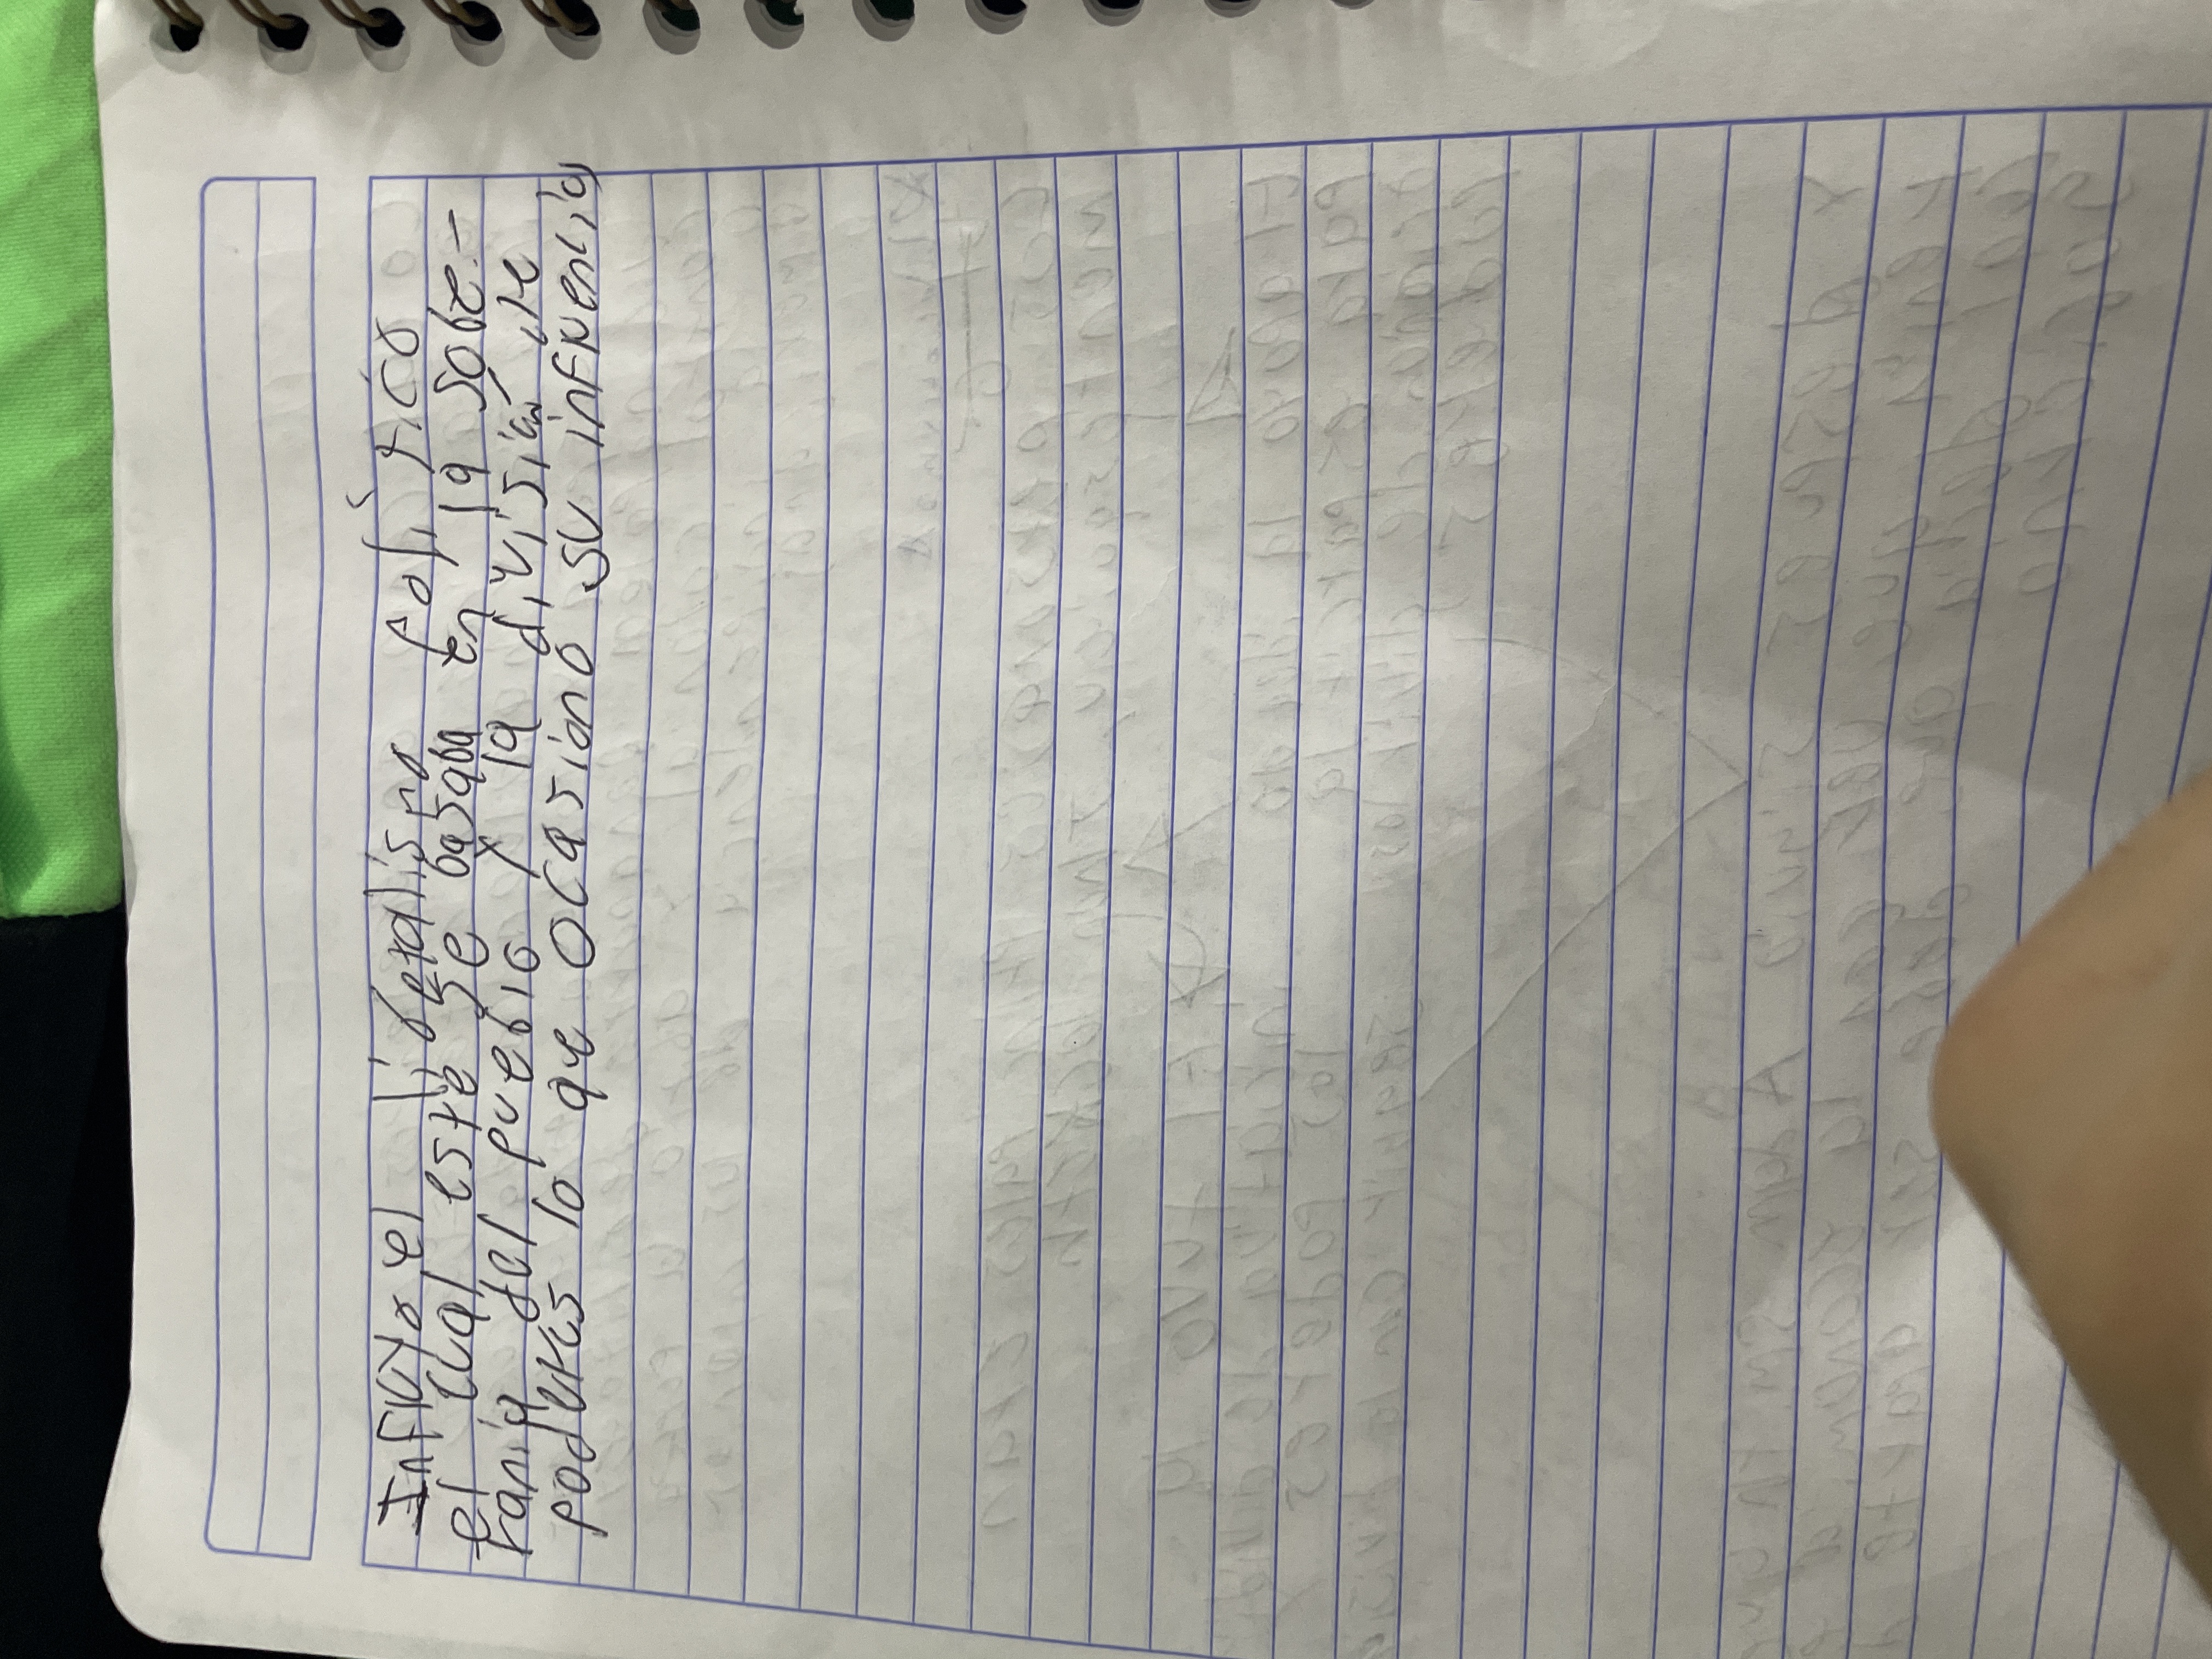 Influyo el liberalismo político
El cual este se basaba en la sobe-
rania del pueblo y la división de
poderes lo que ocasionó su influencia